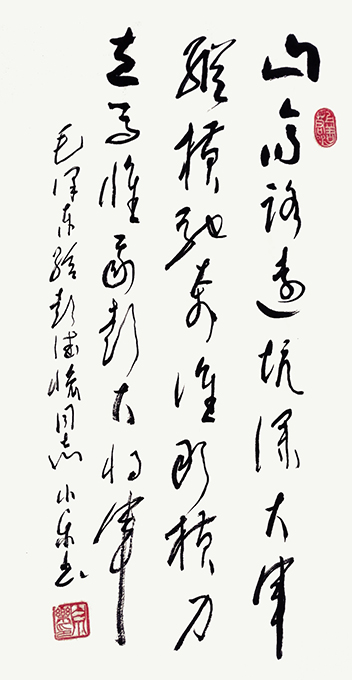 山高路遠坑深大军
纵横驰奔谁敢横刀
立马惟我彭大将军
毛泽东给彭德怀同志 小 书